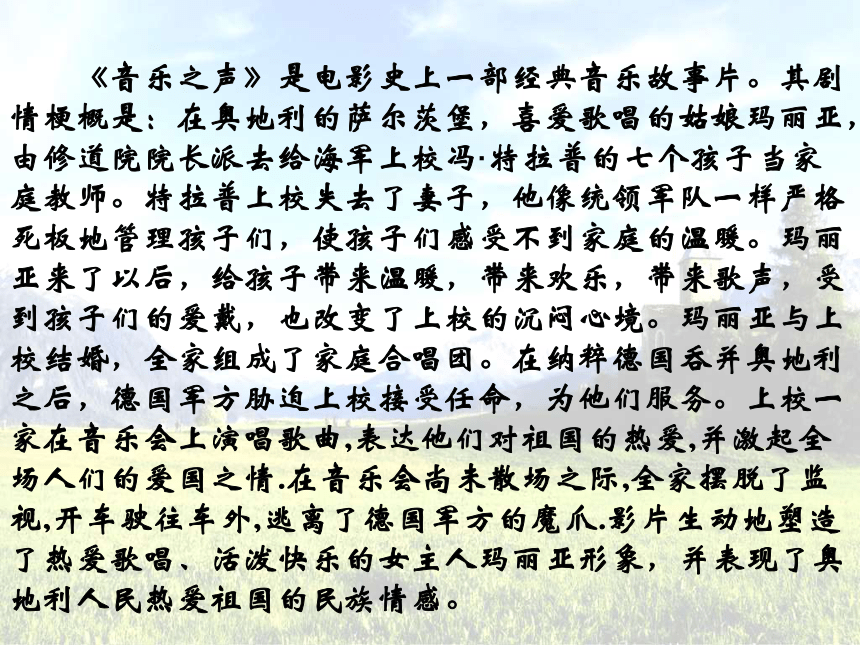 《音乐之声》是电影史上一部经典音乐故事片。其剧
情梗概是：在奥地利的萨尔茨堡，喜爱歌唱的姑娘玛丽亚，
由修道院院长派去给海军上校冯·特拉普的七个孩子当家
庭教师。特拉普上校失去了妻子，他像统领军队一样严格
死板地管理孩子们，使孩子们感受不到家庭的温暖。玛丽
亚来了以后，给孩子带来温暖，带来欢乐，带来歌声，受
到孩子们的爱戴，也改变了上校的沉闷心境。玛丽亚与上
校结婚，全家组成了家庭合唱团。在纳粹德国吞并奥地利
之后，德国军方胁迫上校接受任命，为他们服务。上校一
家在音乐会上演唱歌曲,表达他们对祖国的热爱,并激起全
场人们的爱国之情.在音乐会尚未散场之际,全家摆脱了监
视,开车驶往车外,逃离了德国军方的魔爪.影片生动地塑造
了热爱歌唱、活泼快乐的女主人玛丽亚形象，并表现了奥
地利人民热爱祖国的民族情感。